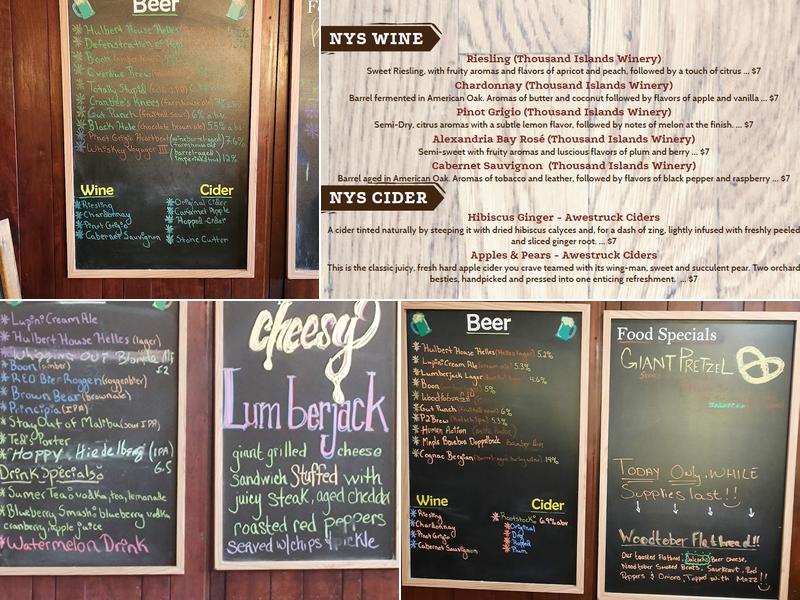 Beer
Hulbert House Helles
Boon
Overdue Brew
Totally Stupid
Crandle's Knees (farmhouse ale)
Gut Punch (fruited sour) 6% abv
Black Hole (chocolate brown ale) 5.5% abv
Pinot Grigio
Whiskey Voyager III
12%
Wine
Riesling
Chardonnay
Pinot Grigio
Cabernet Sauvignon
Cider
Original Cider
Caramel Apple
Hopped Cider
Stone Cutter
NYS WINE
Riesling (Thousand Islands Winery)
Sweet Riesling, with fruity aromas and flavors of apricot and peach, followed by a touch of citrus ... $7
Chardonnay (Thousand Islands Winery)
Barrel fermented in American Oak. Aromas of butter and coconut followed by flavors of apple and vanilla ... $7
Pinot Grigio (Thousand Islands Winery)
Semi-Dry, citrus aromas with a subtle lemon flavor, followed by notes of melon at the finish. ... $7
Alexandria Bay Rosé (Thousand Islands Winery)
Semi-sweet with fruity aromas and luscious flavors of plum and berry ... $7
Cabernet Sauvignon (Thousand Islands Winery)
Barrel aged in American Oak. Aromas of tobacco and leather, followed by flavors of black pepper and raspberry ... $7
NYS CIDER
Hibiscus Ginger - Awestruck Ciders
A cider tinted naturally by steeping it with dried hibiscus calyces and, for a dash of zing, lightly infused with freshly peeled
and sliced ginger root. ... $7
Apples & Pears - Awestruck Ciders
This is the classic juicy, fresh hard apple cider you crave teamed with its wing-man, sweet and succulent pear. Two orchard
besties, handpicked and pressed into one enticing refreshment. ... $7
Lupini Cream Ale
Hulbert House Helles (lager)
Whigging Out Blonde
Boon (amber) 5.2
RED Bier Roggen (roggenbier)
Brown Bear (brown ale)
Principia (IPA)
Stay Out of Malibu (sour IPA)
Ted's Porter
Hoppy Hiedelberg (IPA)
6.5
Drink Specials:
Sumer Tea: vodka, tea, lemonade
Blueberry Smash: blueberry vodka
cranberry, apple juice
Watermelon Drink
cheesy
Lumberjack
giant grilled cheese
sandwich Stuffed with
juicy steak, aged cheddar
roasted red peppers
served w/chips & pickle
Beer
Hulbert House Helles (Helles lager) 5.2%
Lupini Cream Ale 5.3%
Lumberjack Lager 4.6%
Boon 5%
Woodtoberfest
Gut Punch (fruited sour) 6%
P2 Brew 5.3%
Human Action
Maple Bourbon Doppelbock
Cognac Bergian (barrel aged barley wine) 14%
Wine
Riesling
Chardonnay
Pinot Grigio
Cabernet Sauvignon
Cider
Rootstock: 6.9% abv
Original
Dry
Hopped
Plum
Food Specials
GIANT PRETZEL
TODAY Only, WHILE
Supplies last!!
Woodtober Flatbread!!
Our toasted flatbread, Beer cheese,
Woodtober Smoked Brats, Saurkraut, Red
Peppers & Onions, Topped with Mozz!!